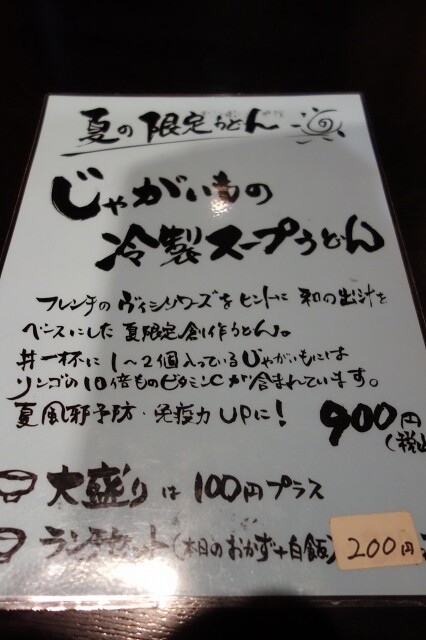 夏の限定うどん
じゃがいもの
冷製スープうどん
フレンチのヴィシソワーズをヒントに和の出汁を
ベースにした夏限定創作うどん。
丼一杯に1〜2個入っているじゃがいもには
リンゴの10倍ものビタミンCが含まれています。
夏風邪予防・免疫力UPに!
900円
(税込
大盛りは100円プラス
ランチセット(本日のおかず+白飯)200円